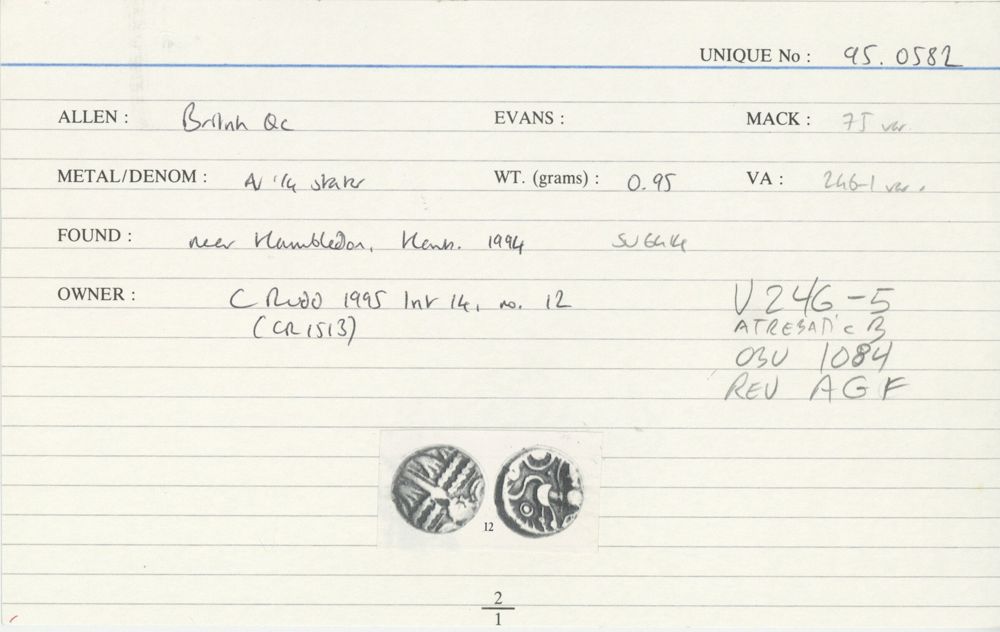 UNIQUE No : 95.0582
ALLEN : British Qc EVANS : MACK : 75 var.
METAL/DENOM : AV 1/4 stater WT. (grams) : 0.95 VA : 246-1 var.
FOUND : near Hambledon, Hants. 1994 SU6414
OWNER : C Rudd 1995 list 14, no. 12
(CR1513)
V246-5
ATREBATIC B
OBV 1084
REV AGF
12
2
1